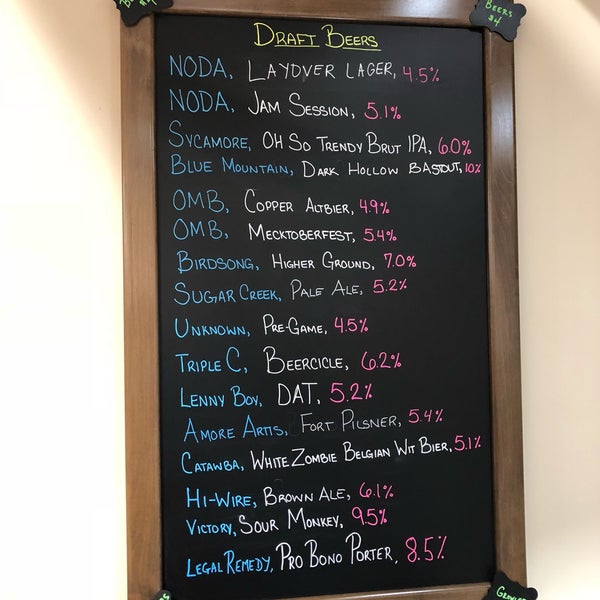 BEERS
$4
DRAFT BEERS
NODA, LAYOVER LAGER, 4.5%
NODA, JAM SESSION, 5.1%
SYCAMORE, OH SO TRENDY BRUT IPA, 6.0%
BLUE MOUNTAIN, DARK HOLLOW BASTOUT, 10%
OMB, COPPER ALTBIER, 4.9%
OMB, MECKTOBERFEST, 5.4%
BIRDSONG, HIGHER GROUND, 7.0%
SUGAR CREEK, PALE ALE, 5.2%
UNKNOWN, PRE-GAME, 4.5%
TRIPLE C, BEERCICLE, 6.2%
LENNY BOY, DAT, 5.2%
AMORE ARTIS, FORT PILSNER, 5.4%
CATAWBA, WHITE ZOMBIE BELGIAN WIT BIER, 5.1%
HI-WIRE, BROWN ALE, 6.1%
VICTORY, SOUR MONKEY, 9.5%
LEGAL REMEDY, PRO BONO PORTER, 8.5%